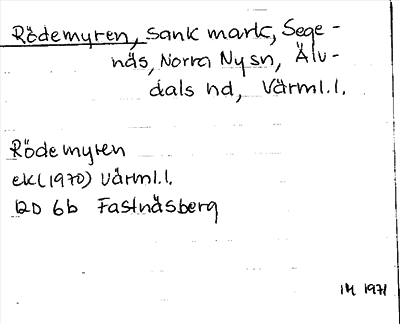 Rödemyren, Sank mark, Sege-
näs, Norra Nysn, Älv-
dals hd, Värml.l.
Rödemyren
ek(1970) Värml.l.
12D 6b Fastnäsberg
IM 1971